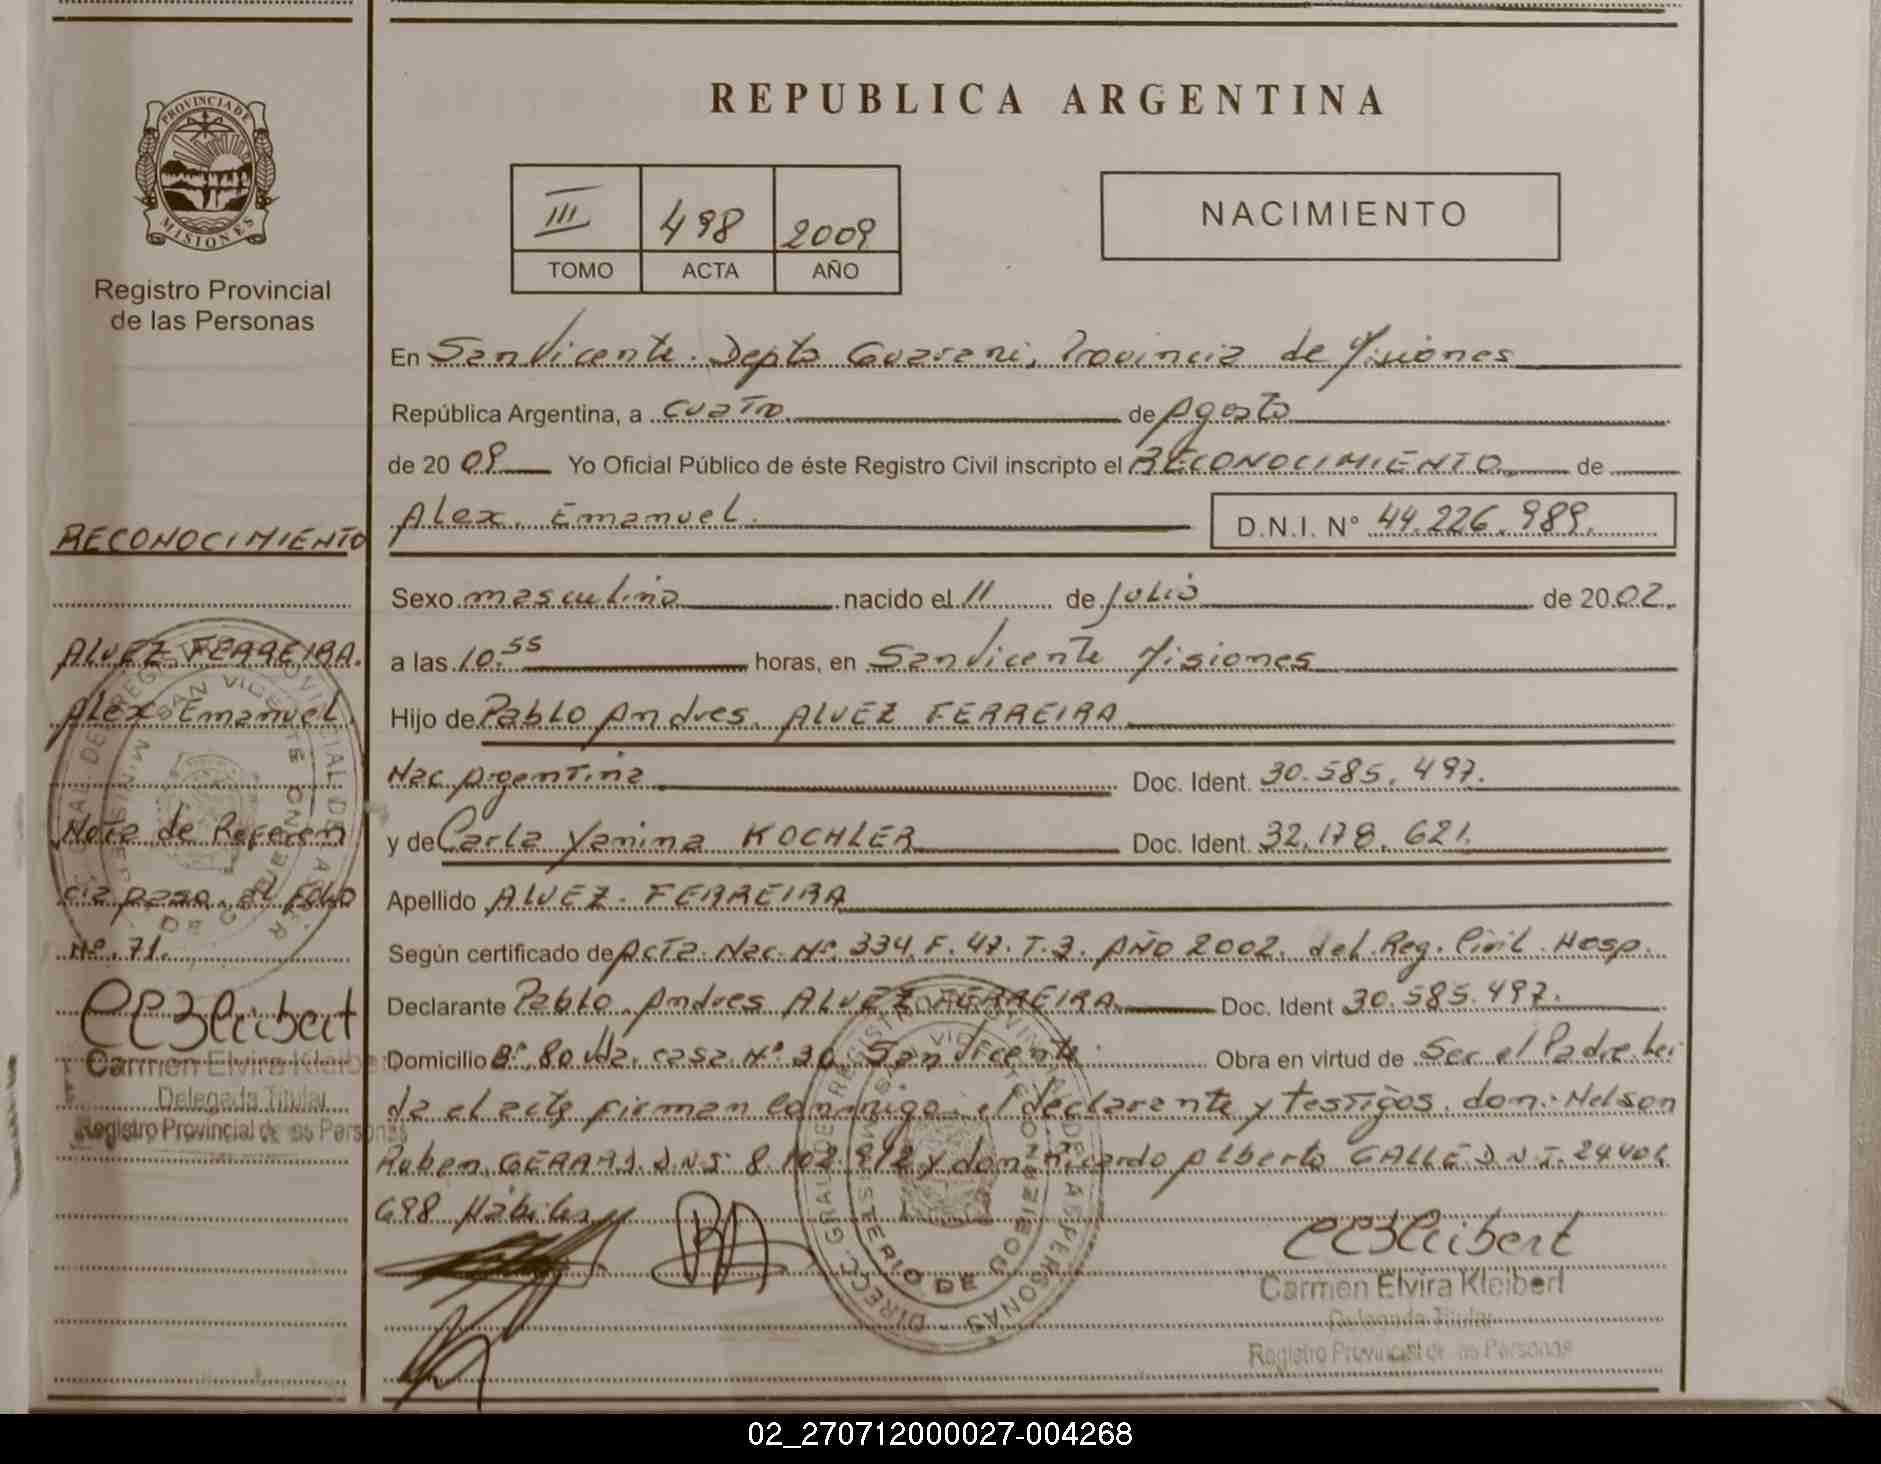 PROVINCIA DE
MISIONES
Registro Provincial
de las Personas
RECONOCIMIENTO
ALVEZ FERREIRA.
Alex Emanuel.
Nota de Referen
cia pasa al folio
Nº 71.
Carmen Elvira Kleibe
Delegada Titular
Registro Provincial de las Personas
REPUBLICA ARGENTINA
III 498 2009
TOMO ACTA AÑO
NACIMIENTO
En San Vicente. Depto Guarani, Provincia de Misiones
República Argentina, a cuatro de Agosto
de 2009 Yo Oficial Público de éste Registro Civil inscripto el RECONOCIMIENTO de
Alex. Emanuel.
D.N.I. Nº 44.226.989.
Sexo masculino nacido el 11 de Julio de 2002.
a las 10.55 horas, en San Vicente Misiones
Hijo de Pablo Andres. ALVEZ FERREIRA
Nac Argentina Doc. Ident. 30.585.497.
y de Carla Yanina KOCHLER Doc. Ident. 32.178.621.
Apellido ALVEZ. FERREIRA
Según certificado de Acta. Nac. Nº 334. F. 47. T. 3. AÑO 2002. del Reg. Civil Hosp.
Declarante Pablo Andres ALVEZ FERREIRA Doc. Ident 30.585.497.
Domicilio Bº 80 Vda. casa Nº 30 San Vicente Obra en virtud de Ser el Padre. Lei
da el acta firman conmigo. el declarante y testigos. don. Nelson
Ruben D.N.I. 8.102.912 y don Ricardo Alberto CALLE D.N.I. 24401
698 Hábiles
Carmen Elvira Kleibert
Delegada Titular
Registro Provincial de las Personas
02_270712000027-004268